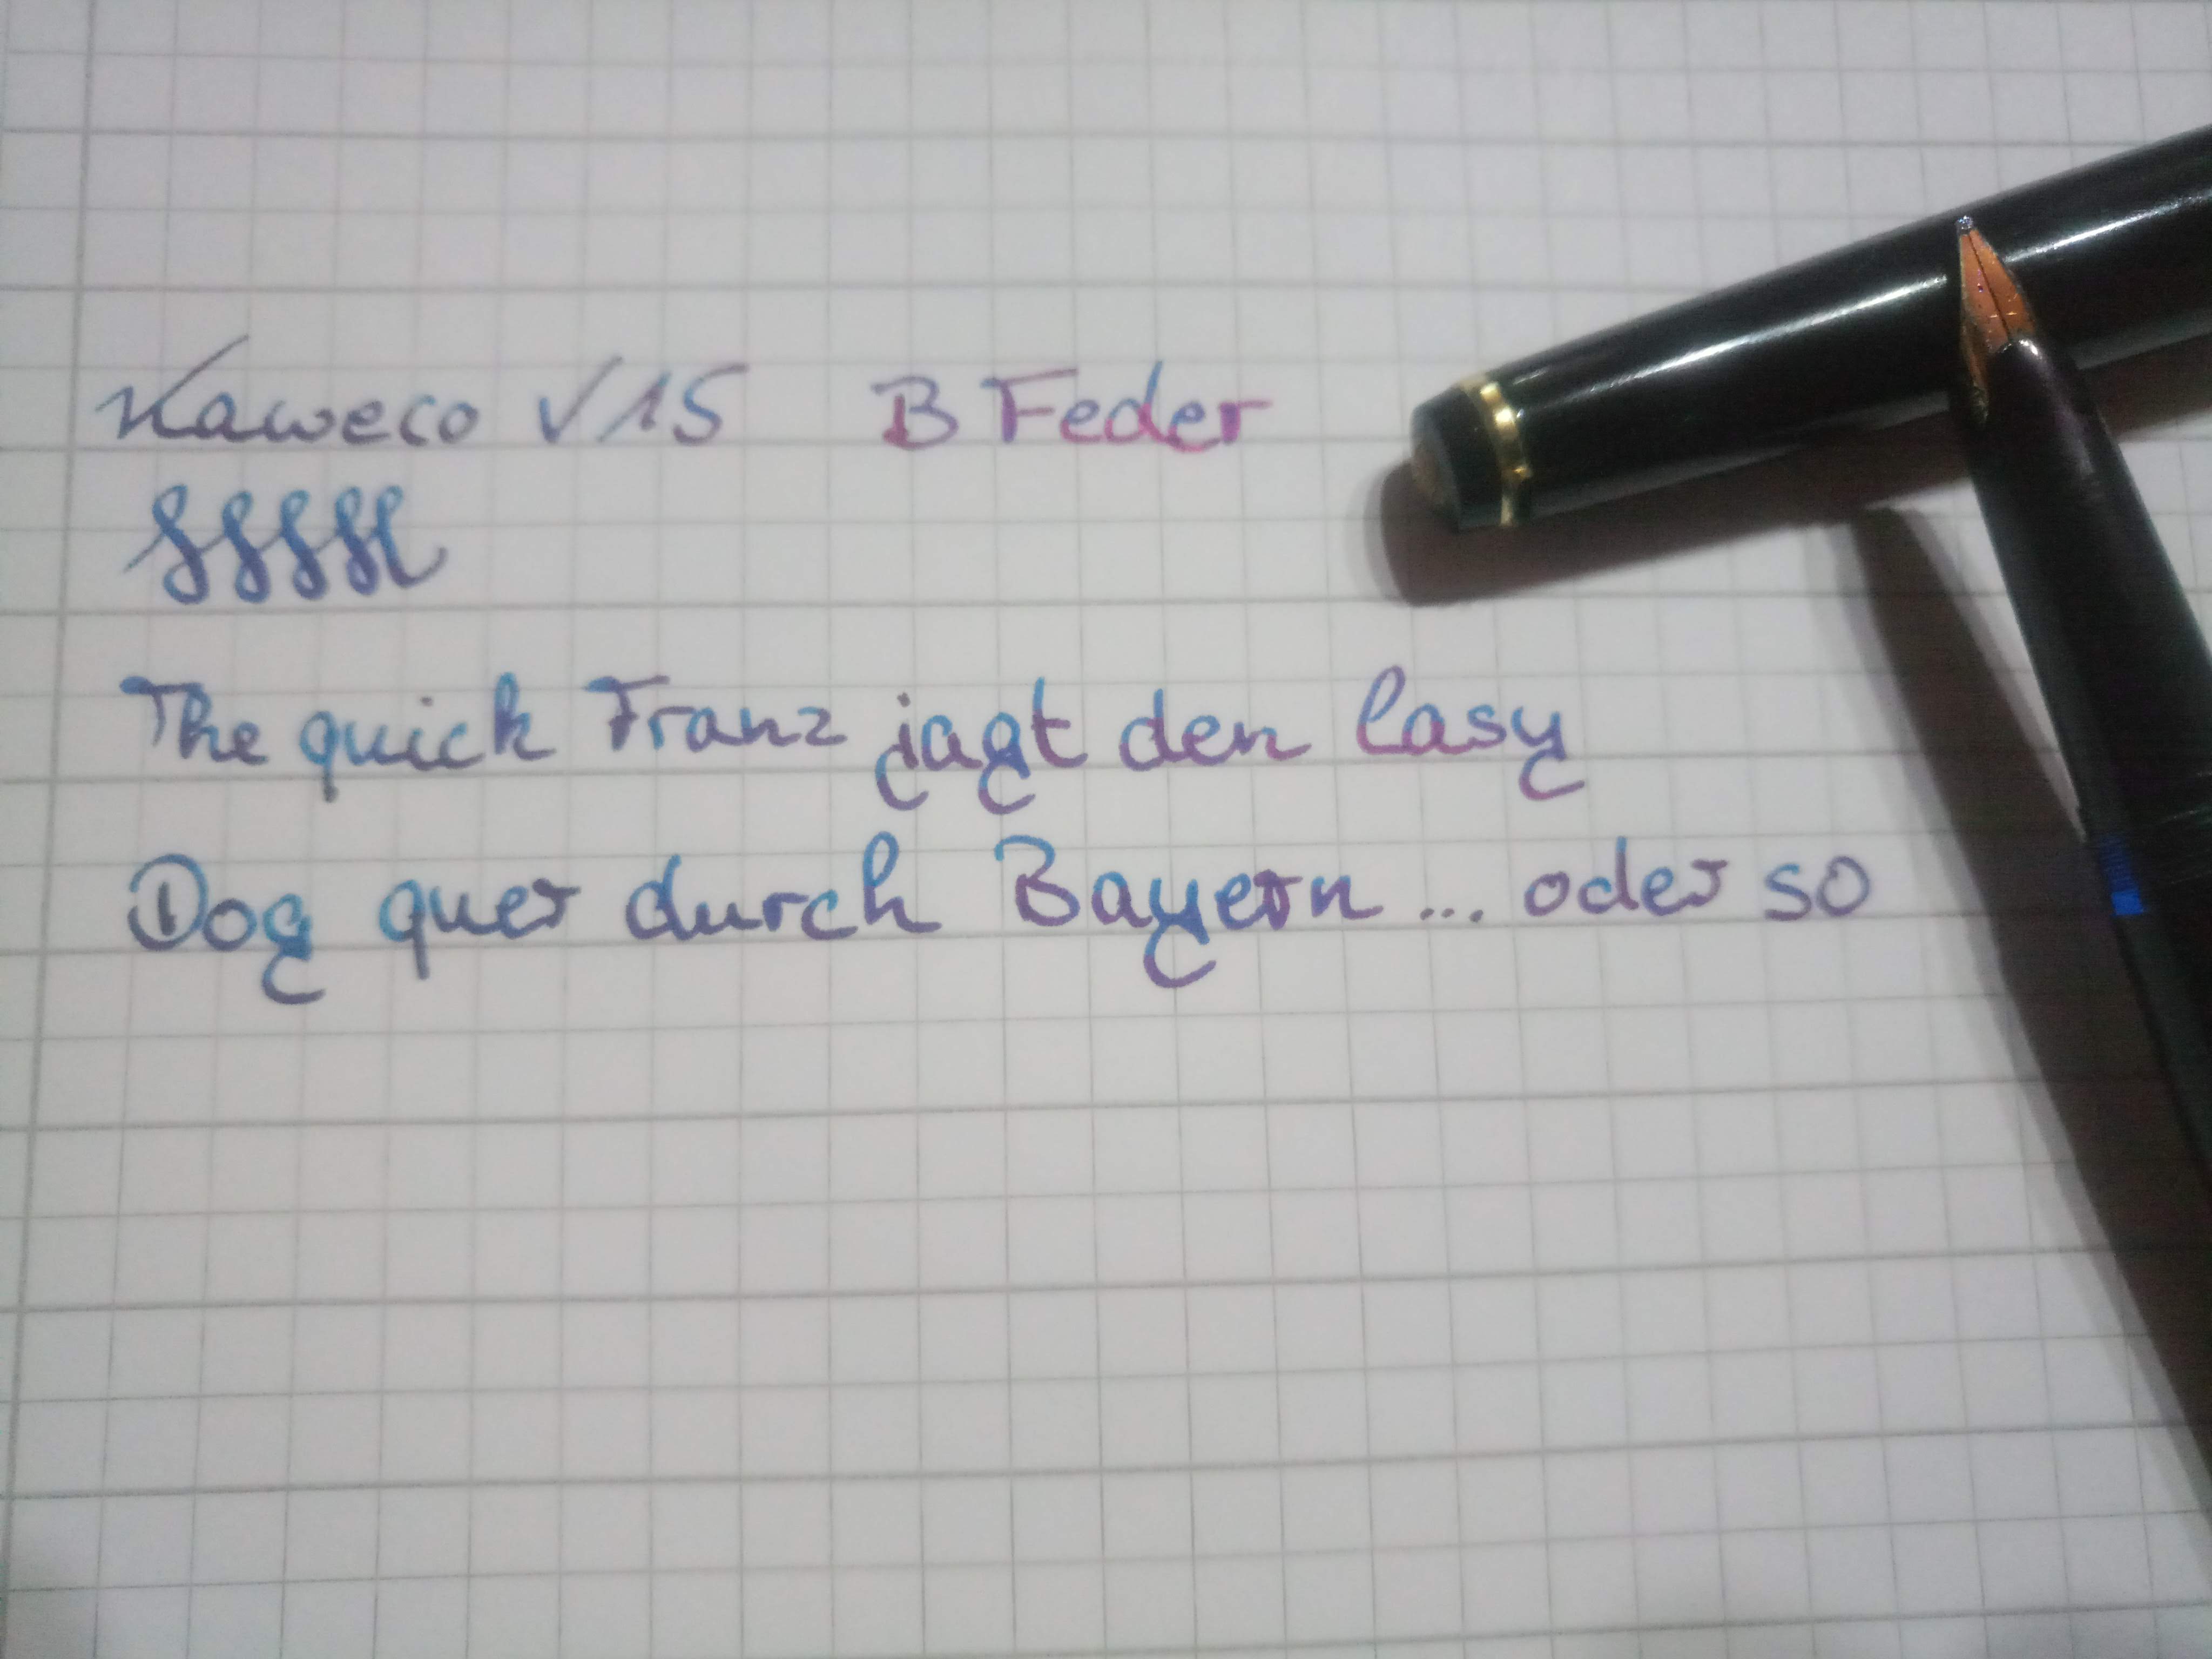 Kaweco V15 B Feder
The quick Franz jagt den lasy
Dog quer durch Bayern ... oder so